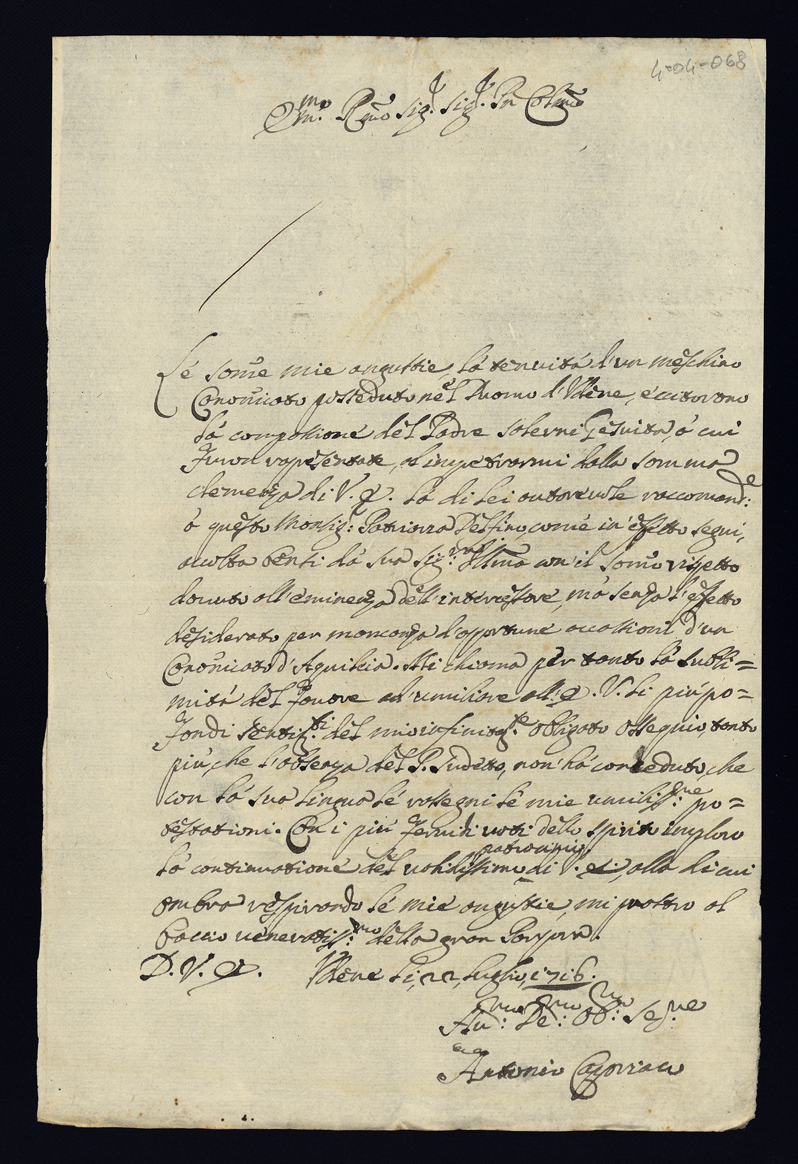 4-04-068
Em.mo Rmo Sig.r Sig.r Pn Colmo
Le som̃e mie angustie, la tenuità d'un meschino
Canonicato posseduto nel Duomo d'Vdene, eccitorono
la compassione del Padre Salerni Gesuita, a cui
furon rapresentate, ad impetrarmi dalla somma
clemenza di V. E. la di lei autoreuole raccomand.e
a questo Monsig.r Patriarca Delfino, come in effetto seguì,
accolta bensì da sua Sig.ria Ill.ma con il som̃o rispetto
douuto all'eminenza dell'intercessore, mà senza l'effetto
desiderato per mancanza d'opportune occassioni d'un
Canonicato d'Aquileia. Mi chiama per tanto la subli=
mità del fauore ad umiliare all'E. V. li più po=
fondi sentim.ti del mio infinitam.e obligato ossequio, tanto
più, che l'absenza del P. sudetto, non hà conceduto, che
con la sua lingua le rassegni le mie umiliss.me po=
testationi. Con i più feruidi uoti dello spirito imploro
la continuatione del ualidissimo patrocinio di V. E., alla di cui
ombra respirando le mie angustie, mi prostro al
baccio ueneratiss.mo della gran Porpora.
D. V. E. Vdene li 22 Luglio 1716.
Hu.mo De.mo Ob.mo Se.re
Antonio